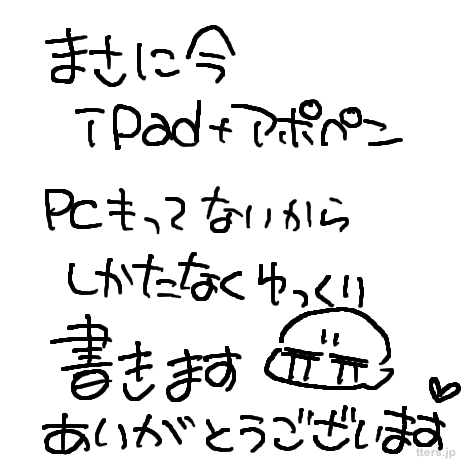 まさに今
iPad+アポペン
PCもってないから
しかたなくゆっくり
書きます
ありがとうございます
tters.jp